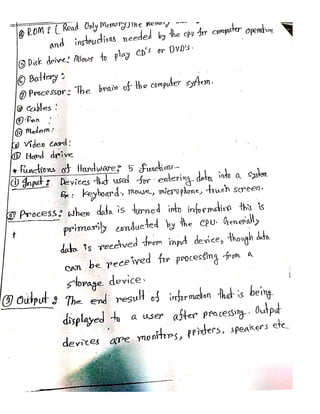 ④ ROM: (Read Only Memory) The memory
and instructions needed by the cpu for computer operation
⑤ Dick drive: Allows to play CD's or DVD's.
⑥ Battery:
⑦ Processor: The brain of the computer system.
⑧ Cables:
⑨ Fan :
⑩ Modem:
⑪ Video Card:
⑫ Hard drive
* Functions of Hardware: 5 function-
① Input: Devices that used for entering data into a system
Ex: Keyboard, mouse, microphone, touch screen.
② Process: When data is turned into information this is
primarily conducted by the CPU. Generally
data is received from input device, though data
can be received for processing from a
storage device.
③ Output: The end result of information that is being
displayed to a user after processing. Output
devices are monitors, printers, speakers etc.